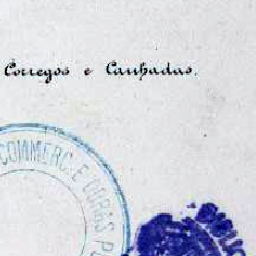 Corregos e Canhadas.
COMMERC. E OBRAS P